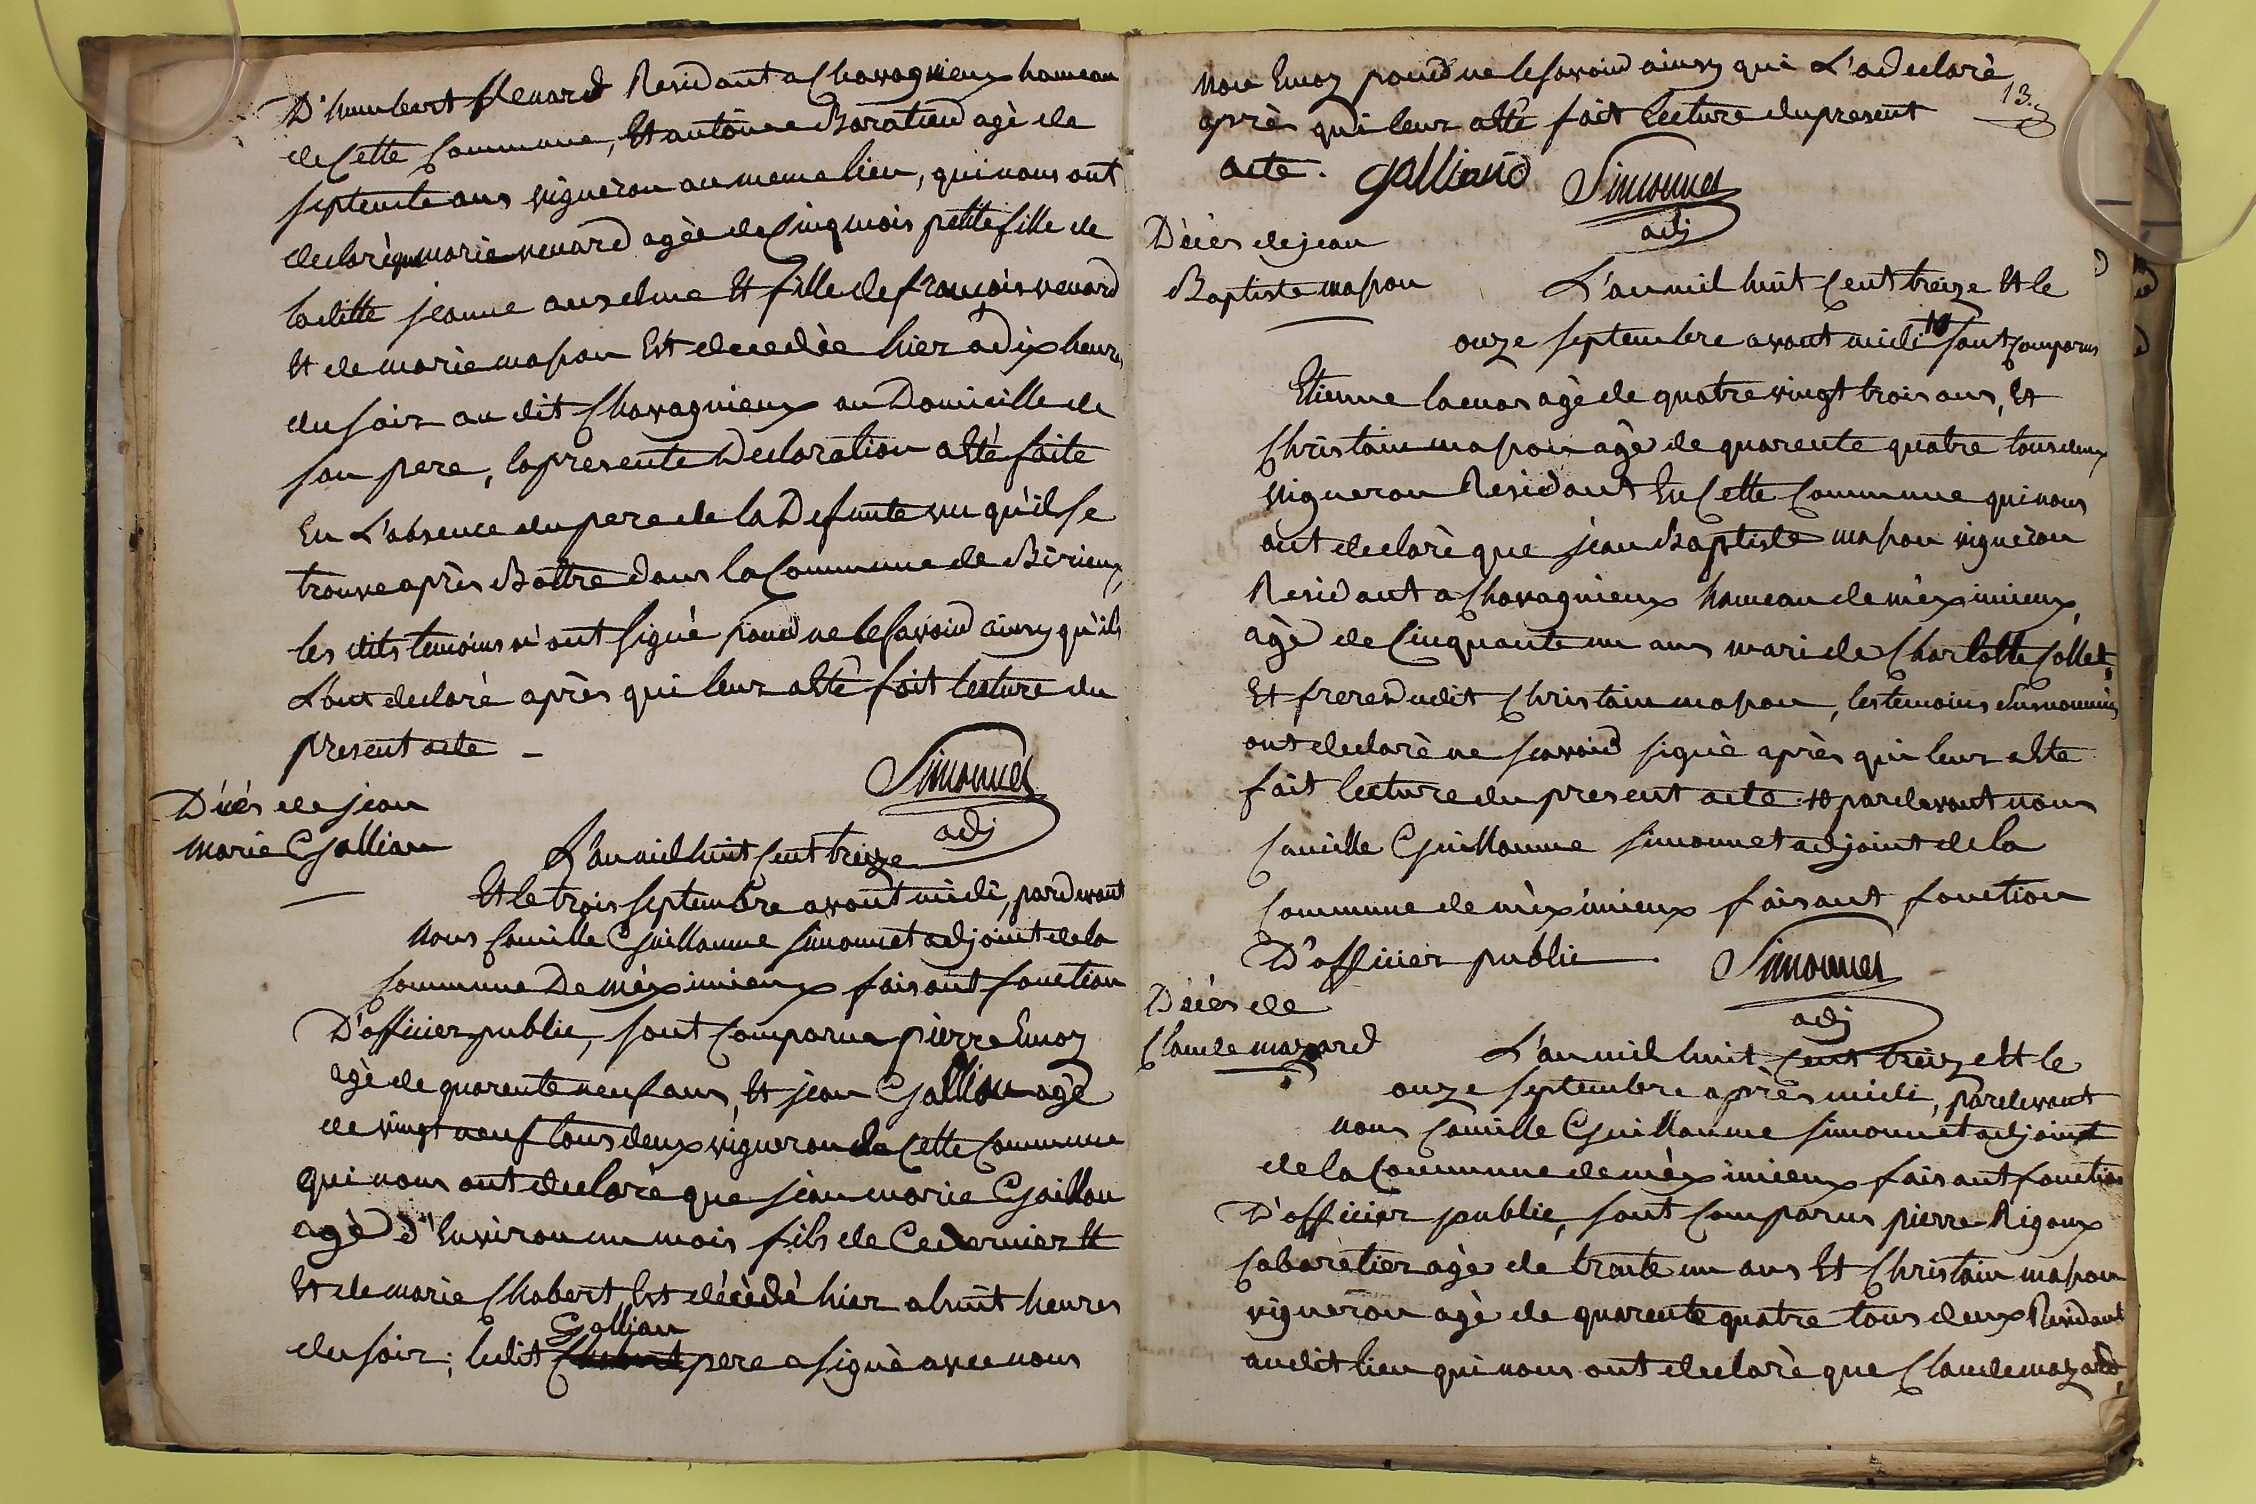 D'humbert Renard Residant a Chavagnieux hameau
de Cette Commune, Et antoine Baratier agè de
septente ans vigneron au meme lieu, qui nous ont
declarè que marie renard agèe de Cinq mois petite fille de
la ditte jeanne anselme Et fille de françois renard
Et de marie mapon Est decedèe hier a dix heures
du soir au dit Chavagnieux au Domicille de
son pere, la presente Declaration a Eté faite
En L'absence du pere de la Defunte vu qu'il se
trouve après Battre dans la Commune de Birieux,
les dits temoins n'ont signè pour ne le savoir ainsy qu'ils
L'ont declarè après qui leur a Eté fait lecture du
present acte -
Simonnet
adj
Décés de jean
marie Gallian
L'an mil huit Cent treize
Et le trois septembre avant midi, pardevant
nous Camille Guillaume simonnet adjoint de la
Commune De mèximieux faisant fonction
D'officier public, sont Comparus pierre Emoz
agè de quarente neuf ans, Et jean Gallian agè
de vingt neuf tous deux vigneron de Cette Commune
qui nous ont declarè que jean marie Gallian
agè d'Environ un mois fils de Ce dernier Et
Et de marie Chabert, Est décèdé hier a huit heures
Gallian
du soir; ledit pere a signè avec nous
13.
non Emoz pour ne le savoir ainsy qui L'a declarè
après qui leur a Eté fait lecture du present
acte. Galliand Simonnet
adj
Décés de jean
Baptiste mapon
L'an mil huit Cent treize Et le
onze septembre avant midi sont Comparus
Etienne lacuas agè de quatre vingt trois ans, Et
Christain mapon agè de quarente quatre tous deux
vigneron Residant En Cette Commune qui nous
ont declarè que jean Baptiste mapon vigneron
Residant a Chavagnieux hameau de mèximieux,
agè de Cinquante un ans mari de Charlotte Collet,
Et frere dudit Christain mapon, les temoins susnommès
ont declarè ne savoir signè après qui leur a Eté
fait lecture du present acte pardevant nous
Camille Guillaume simonnet adjoint de la
Commune de mèximieux faisant fonction
D'officier public. Simonnet
adj
Décés de
Claude mazard
L'an mil huit Cent treize Et le
onze septembre après midi, pardevant
nous Camille Guillaume simonnet adjoint
de la Commune de mèximieux faisant fonction
D'officier public, sont Comparus pierre Rigoux
Cabarètier agè de trente un ans Et Christain mapon
vigneron agè de quarente quatre tous deux Residant
audit lieu qui nous ont declarè que Claude mazard,